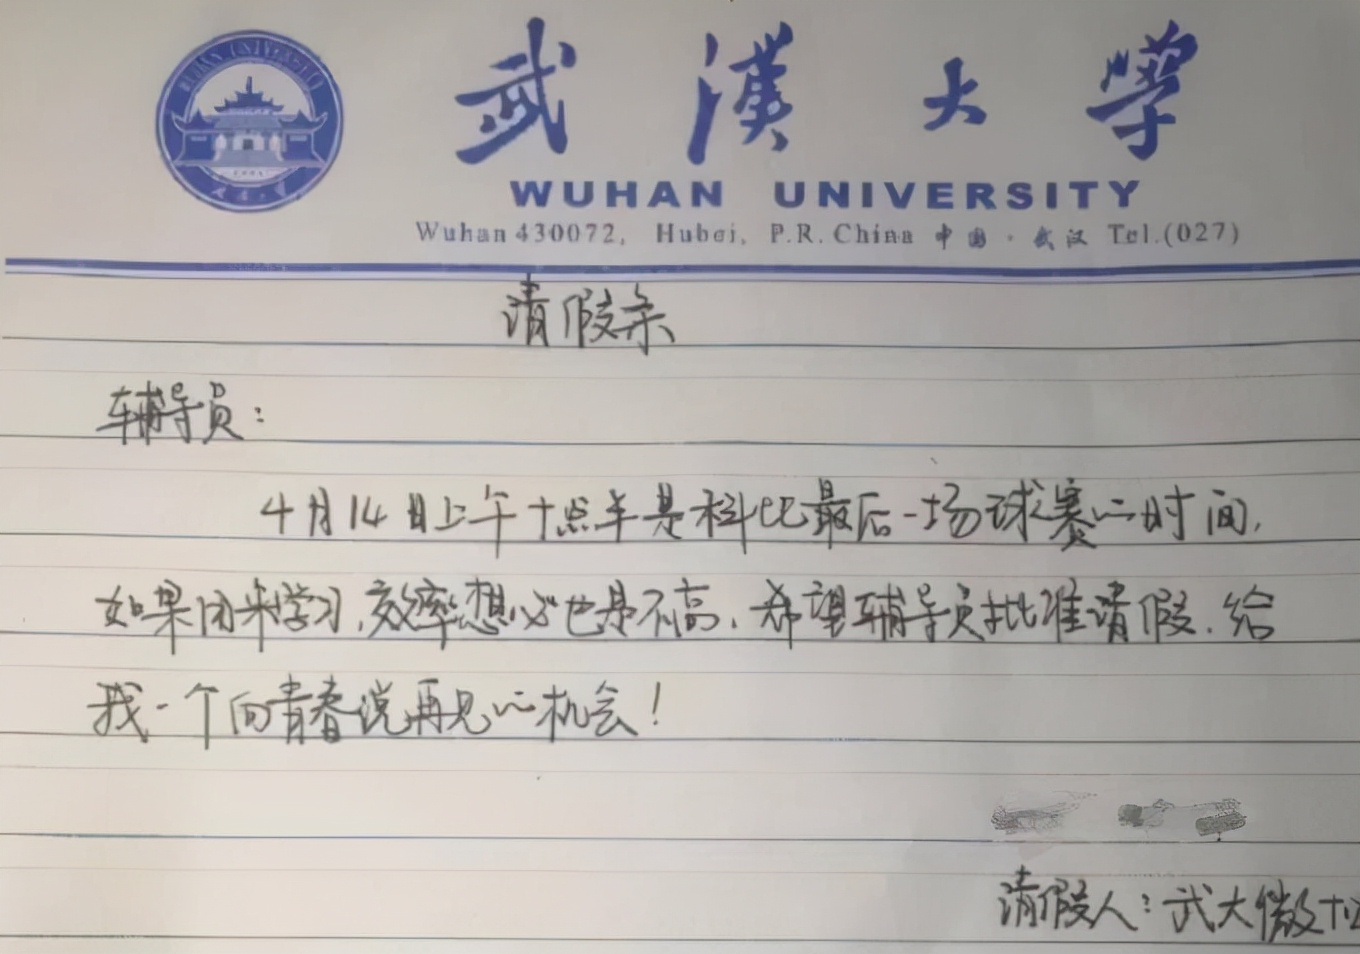 WUHAN UNIVERSITY
武漢大學
WUHAN UNIVERSITY
Wuhan 430072, Hubei, P.R. China 中国·武汉 Tel.(027)
请假条
辅导员：
4月14日上午十点半是科比最后一场球赛的时间，
如果闭来学习，效率想必也是不高，希望辅导员批准请假，给
我一个向青春说再见的机会！
请假人：武大微